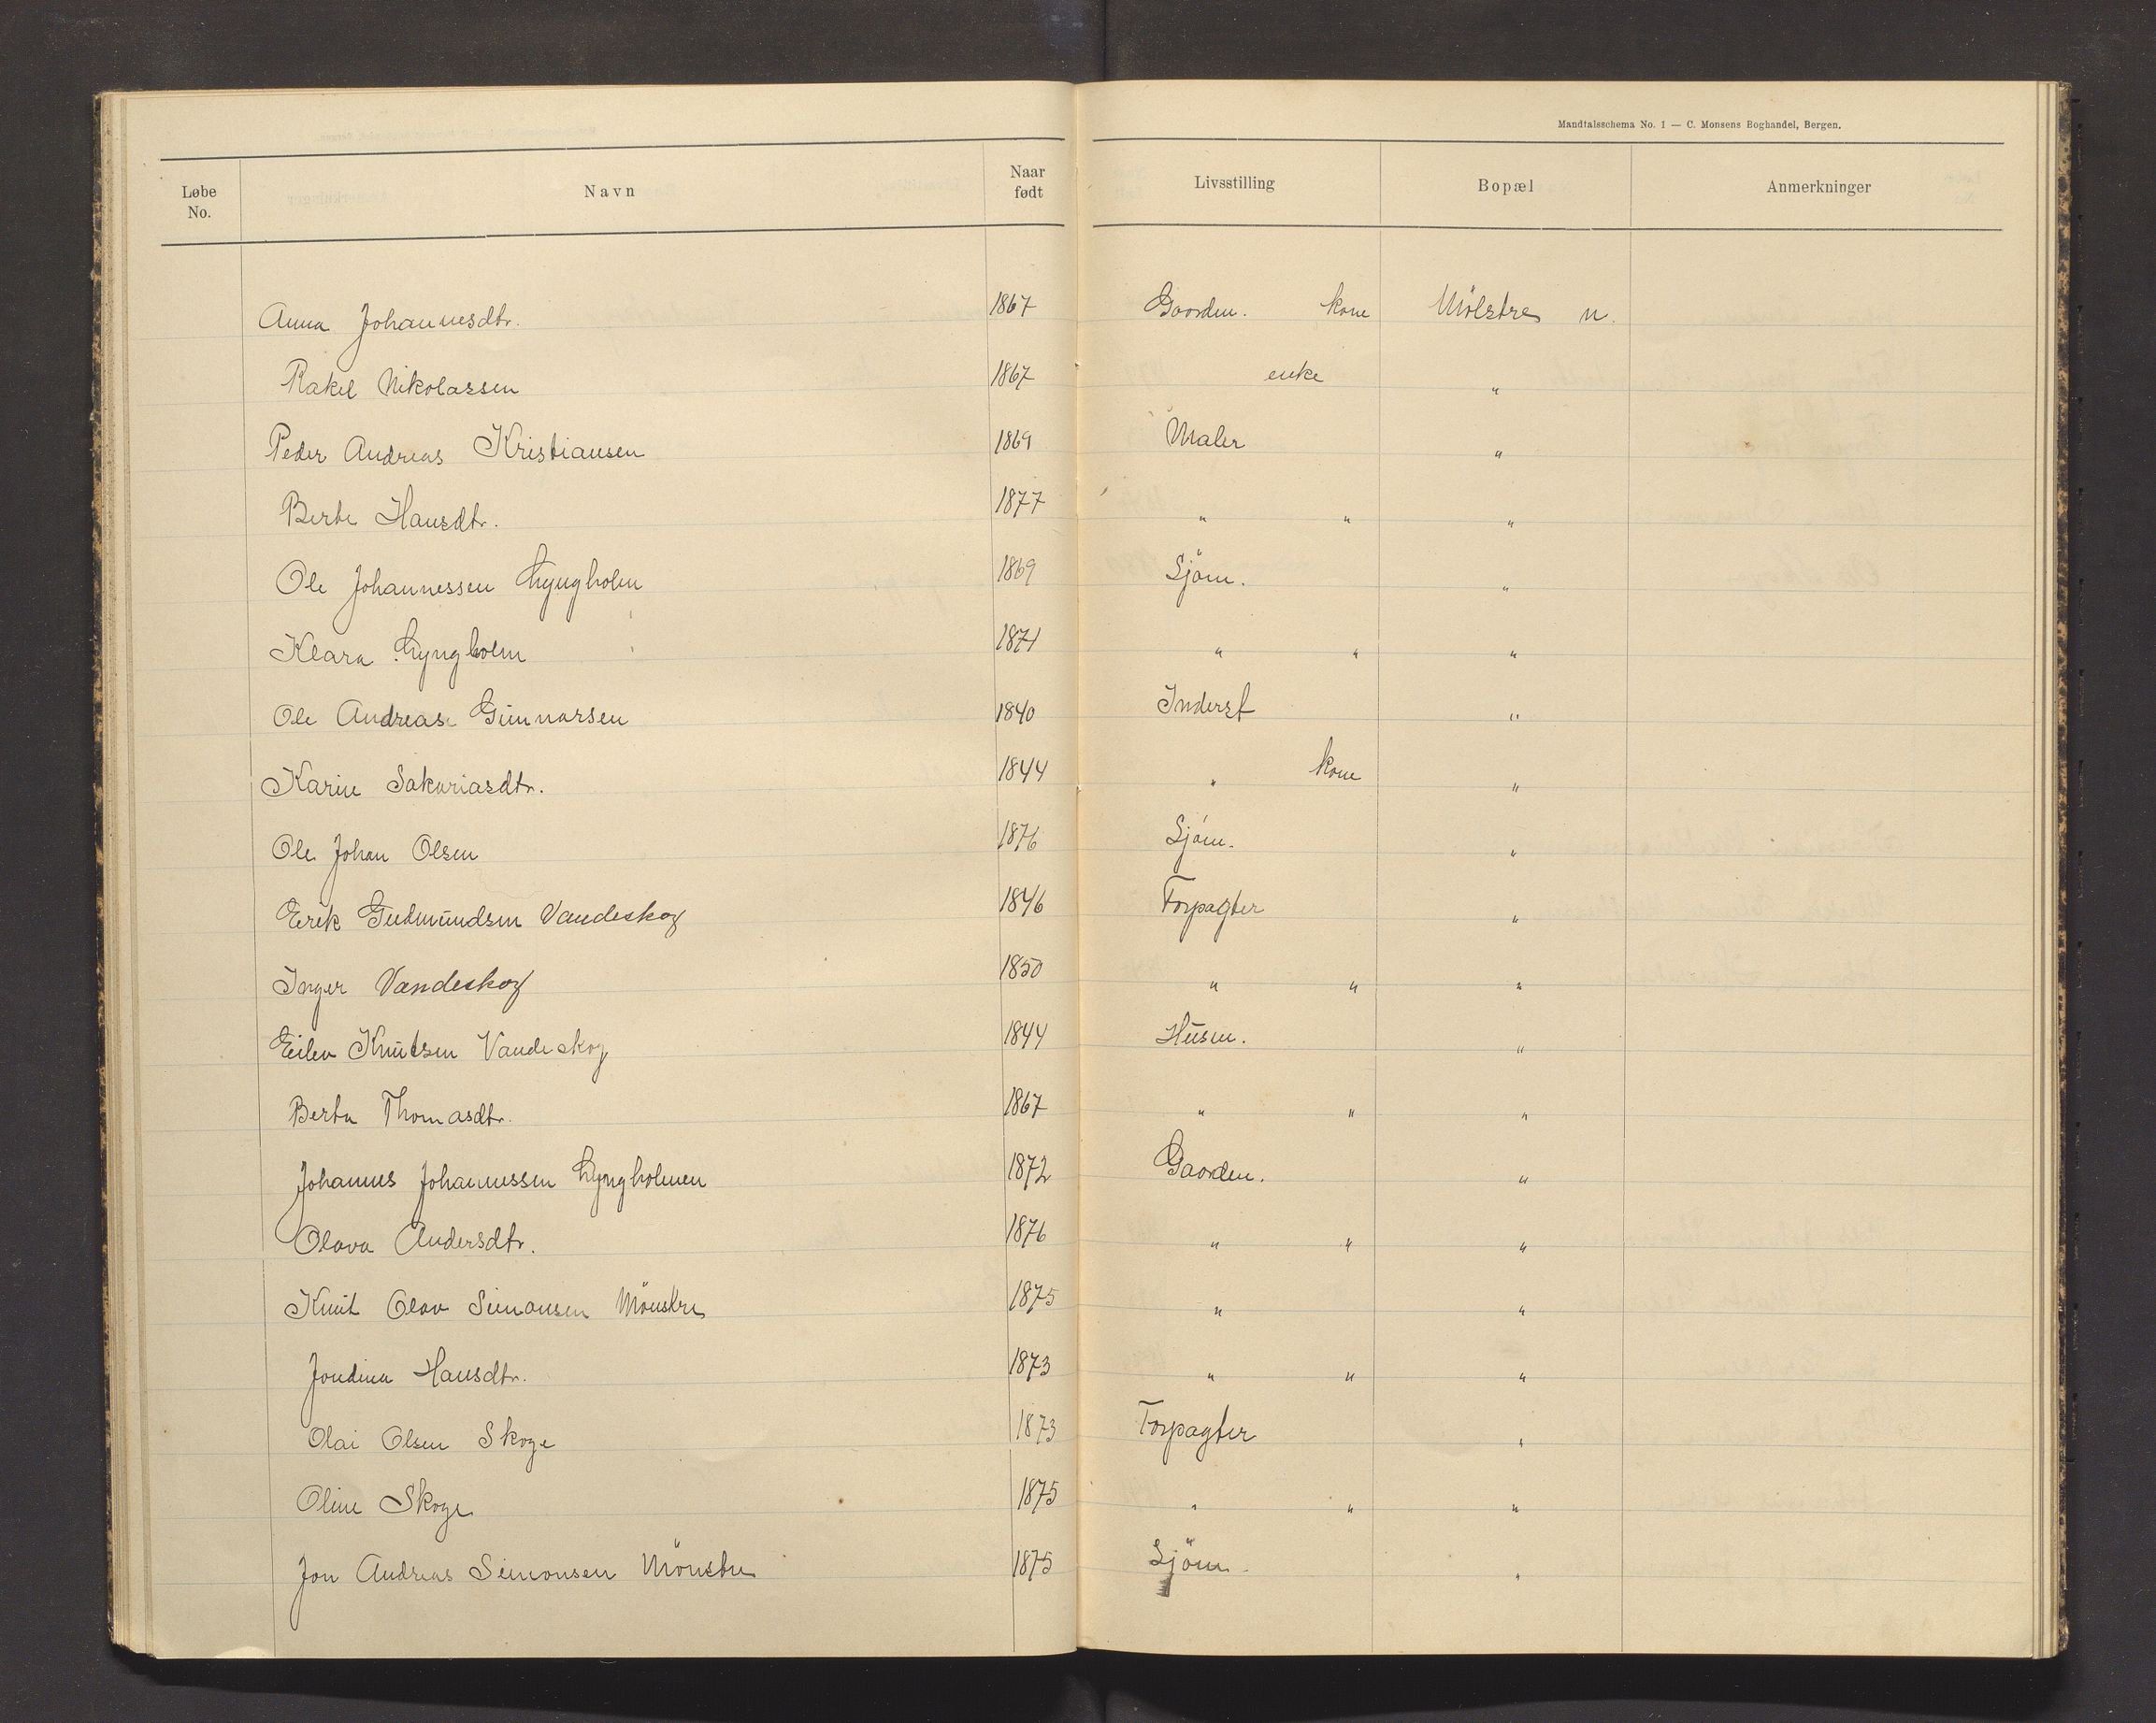 Mandtalsschema No. 1 — C. Monsens Boghandel, Bergen.
Løbe No. Navn Naar født Livsstilling Bopæl Anmerkninger
Anna Johannesdtr. 1867 Gaarden. kone Mölstre n.
Rakel Nikolassen 1867 enke "
Peder Andreas Kristiansen 1869 Maler "
Berte Hansdtr. 1877 " " "
Ole Johannessen Lyngholm 1869 Sjöm. "
Klara Lyngholm 1871 " " "
Ole Andreas Gunnarsen 1840 Inderst "
Karine Sakariasdtr. 1844 " kone "
Ole Johan Olsen 1876 Sjöm. "
Erik Gudmundsen Vandeskog 1846 Forpagter "
Inger Vandeskog 1850 " " "
Eilev Knutsen Vandeskog 1844 Husm. "
Berta Thomasdtr. 1867 " " "
Johannes Johannessen Lyngholmen 1872 Gaarden. "
Olava Andersdtr. 1876 " " "
Knut Olav Simonsen Mönstre 1875 " "
Jondina Hansdtr. 1873 " " "
Olai Olsen Skoge 1873 Forpagter "
Oline Skoge 1875 " " "
Jon Andreas Simonsen Mönstre 1875 Sjöm. "